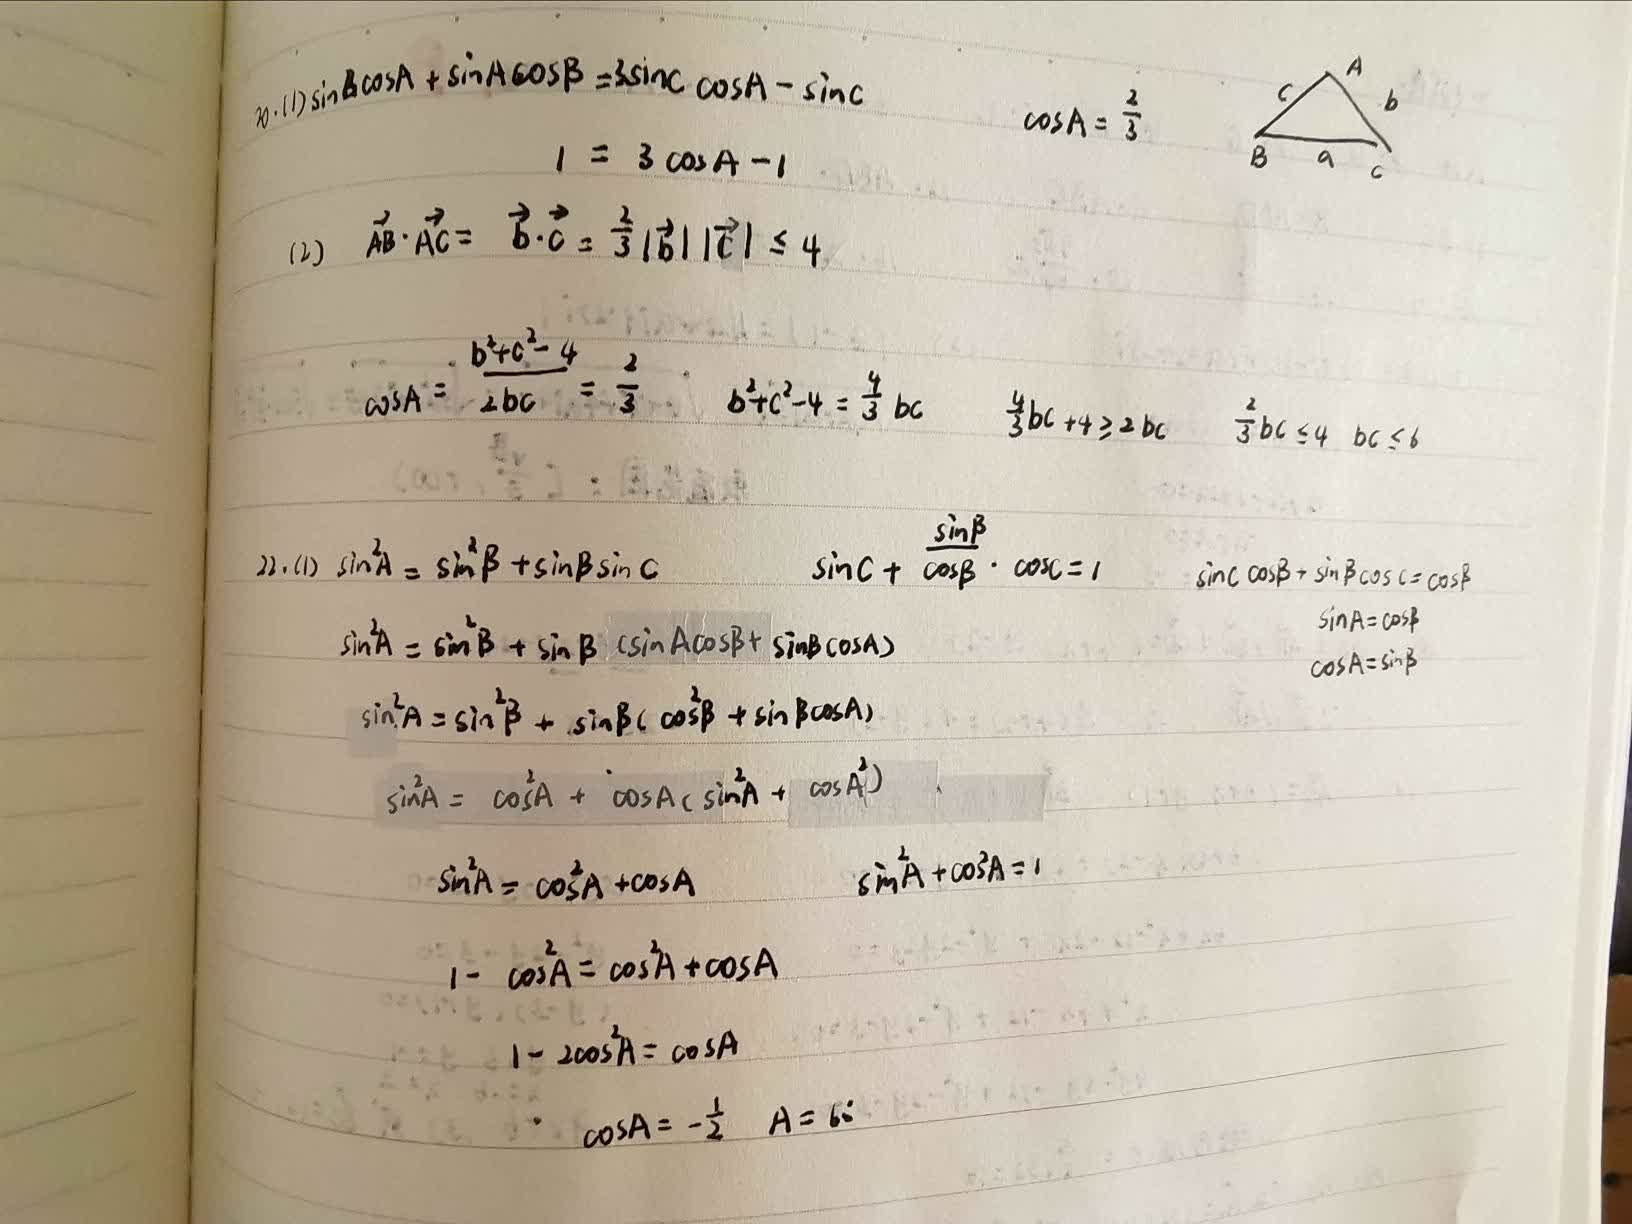 20.(1) sinBcosA + sinAcosB = 3sinC cosA - sinC
cosA = 2/3
A
c b
B a C
1 = 3cosA - 1
(2) AB⃗·AC⃗ = b⃗·c⃗ = 2/3|b⃗||c⃗| ≤ 4
cosA = (b²+c²-4)/2bc = 2/3 b²+c²-4 = 4/3 bc 4/3bc+4≥2bc 2/3bc≤4 bc≤6
22.(1) sin²A = sin²B + sinBsinC sinC + sinB/cosB · cosC = 1 sinC cosB + sinBcosC = cosB
sinA = cosB
cosA = sinB
sin²A = sin²B + sinB(sinAcosB + sinBcosA)
sin²A = sin²B + sinB(cos²B + sinBcosA)
sin²A = cos²A + cosA(sin²A + cosA²)
sin²A = cos²A + cosA sin²A + cos²A = 1
1 - cos²A = cos²A + cosA
1 - 2cos²A = cosA
cosA = -1/2 A = 60°